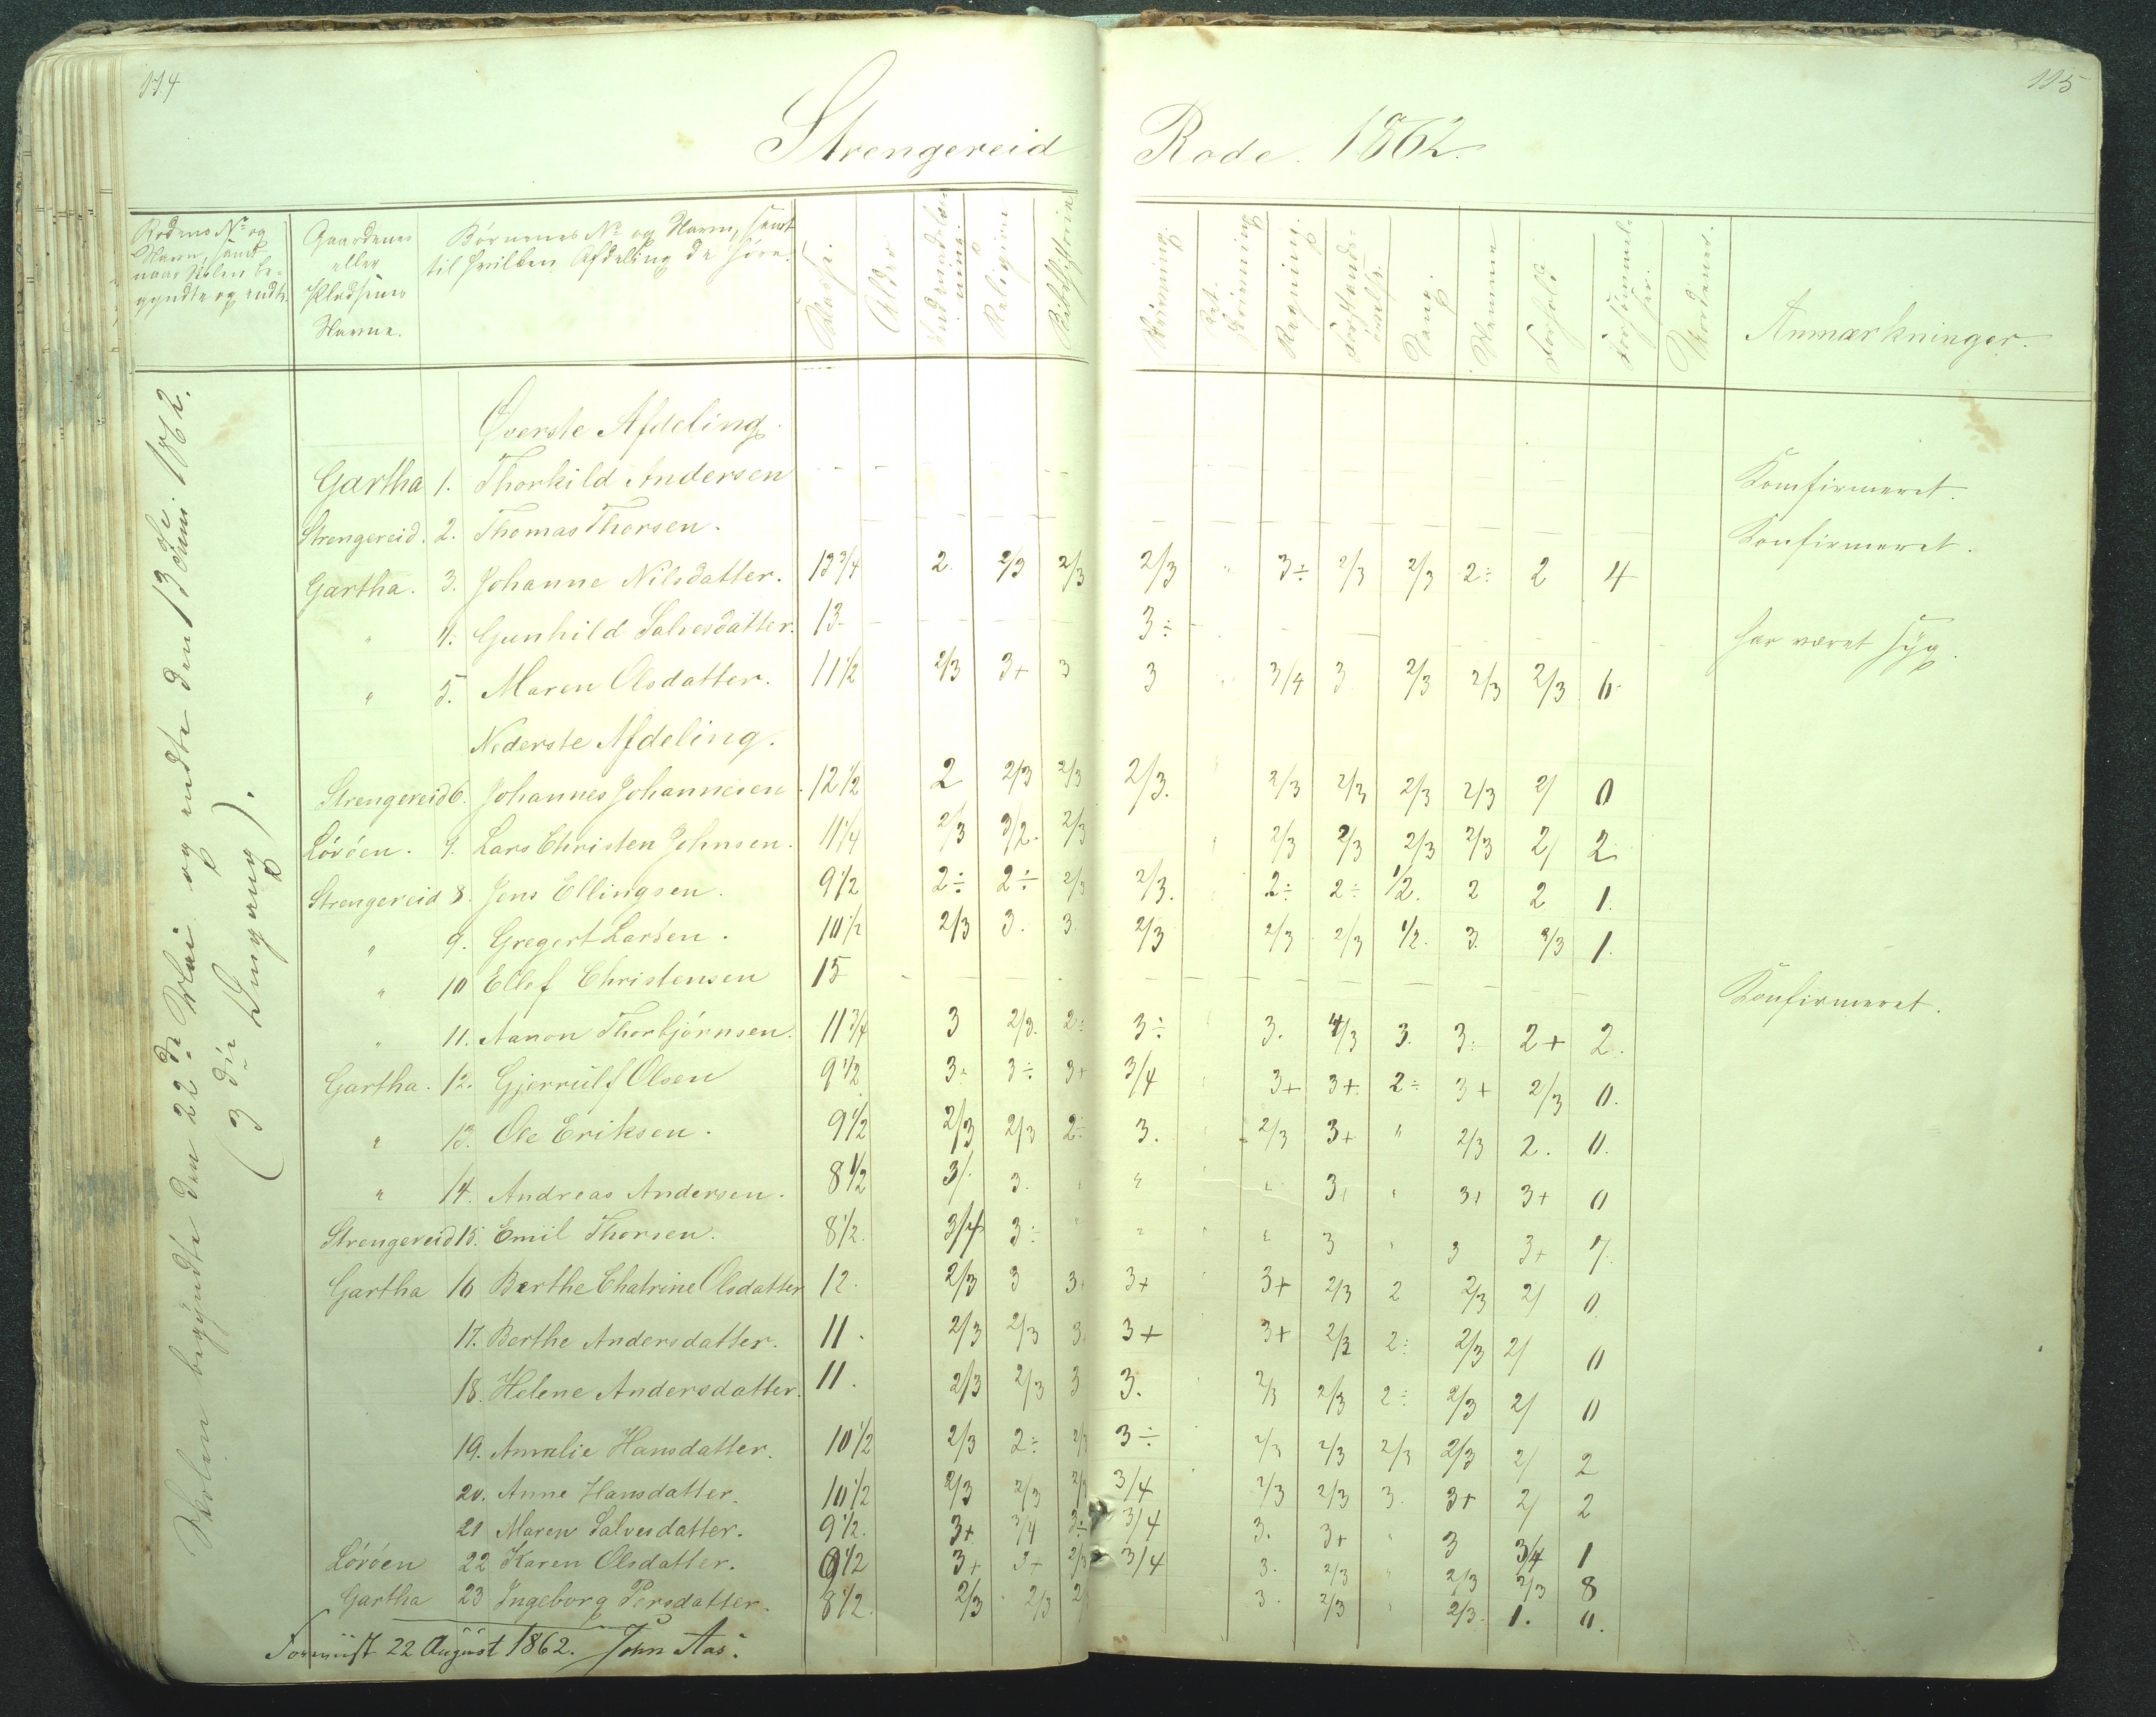 114
115
Strengereid Rode. 1862.
Rodens No og Navn, samt naar Skolen begyndte og endte.
Gaardenes eller Pladsenes Navne.
Børnenes No og Navn, samt til hvilken Afdeling de høre.
Alder
Religion
Bibelhistorie
Skrivning.
Regning.
Sang.
Nemme
Forhold
Forsømmelser.
Anmærkninger.
Skolen begyndte den 22de Mai og endte den 13de Juni 1862.
(3die Omgang).
Øverste Afdeling.
Gartha 1. Thorkild Andersen - - - Konfirmeret.
Strengereid. 2. Thomas Thorsen. - - - Konfirmeret.
Gartha. 3. Johanne Nilsdatter. 13 3/4 2. 2/3 2/3 2/3 " 3÷ 2/3 2/3 2÷ 2 4
" 4. Gunhild Salvesdatter. 13 - - - 3÷ - - - har været syg.
" 5. Maren Olsdatter. 11 1/2 2/3 3+ 3 3 " 3/4 3 2/3 2/3 2/3 6
Nederste Afdeling.
Strengereid 6. Johannes Johannesen 12 1/2 2 2/3 2/3 2/3. " 2/3 2/3 2/3 2/3 2/ 0
Lövöen. 7. Lars Christen Johnsen. 11 1/4 2/3 3/2. 2/3 " 2/3 2/3 2/3 2/3 2/ 2
Strengereid 8. Jens Ellingsen. 9 1/2 2÷ 2÷ 2/3 2/3. 2÷ 2÷ 1/2. 2 2 1.
" 9. Gregert Larsen. 10 1/2 2/3 3. 3. 2/3 2/3 2/3 1/2. 3. 2/3 1.
" 10 Ellef Christensen 15 - - - Konfirmeret.
" 11. Aanon Thorbjörnsen. 11 3/4 3 2/3. 2÷ 3÷ 3. 4/3 3. 3. 2+ 2.
Gartha. 12. Gjerrulf Olsen 9 1/2 3÷ 3÷ 3+ 3/4 3+ 3+ 2÷ 3+ 2/3 0.
" 13. Ole Eriksen. 9 1/2 2/3 2/3 2÷ 3. 2/3 3+ " 2/3 2. 0.
" 14. Andreas Andersen. 8 1/2 3/. 3. " " " 3+ " 3+ 3+ 0
Strengereid 15. Emil Thorsen. 8 1/2. 3/4 3÷ " " " 3 " 3 3+ 7.
Gartha 16 Berthe Chatrine Olsdatter 12. 2/3 3 3+ 3+ 3+ 2/3 2 2/3 2/ 0
17. Berthe Andersdatter. 11. 2/3 2/3 3. 3+ 3+ 2/3 2÷ 2/3 2/ 0
18. Helene Andersdatter. 11. 2/3 2/3 3 3. 2/3 2/3 2÷ 2/3 2/ 0
19. Amalie Hansdatter. 10 1/2 2/3 2÷ 2/3 3÷ 2/3 2/3 2/3 2/3 2/ 2
20. Anne Hansdatter. 10 1/2 2/3 2/3 2/3 3/4 2/3 2/3 3. 3+ 2/ 2
21 Maren Salvesdatter. 9 1/2. 3+ 3/4 3÷ 3/4 3. 3+ " 3 3/4 1
Lövöen 22 Karen Olsdatter. 9 1/2 3+ 3+ 2/3 3/4 3. 2/3 " 2/3 2/3 8
Gartha 23 Ingeborg Persdatter. 8 1/2. 2/3 2/3 2/3 3. 2/3 " 2/3. 1. 0.
22 August 1862. John Aas.